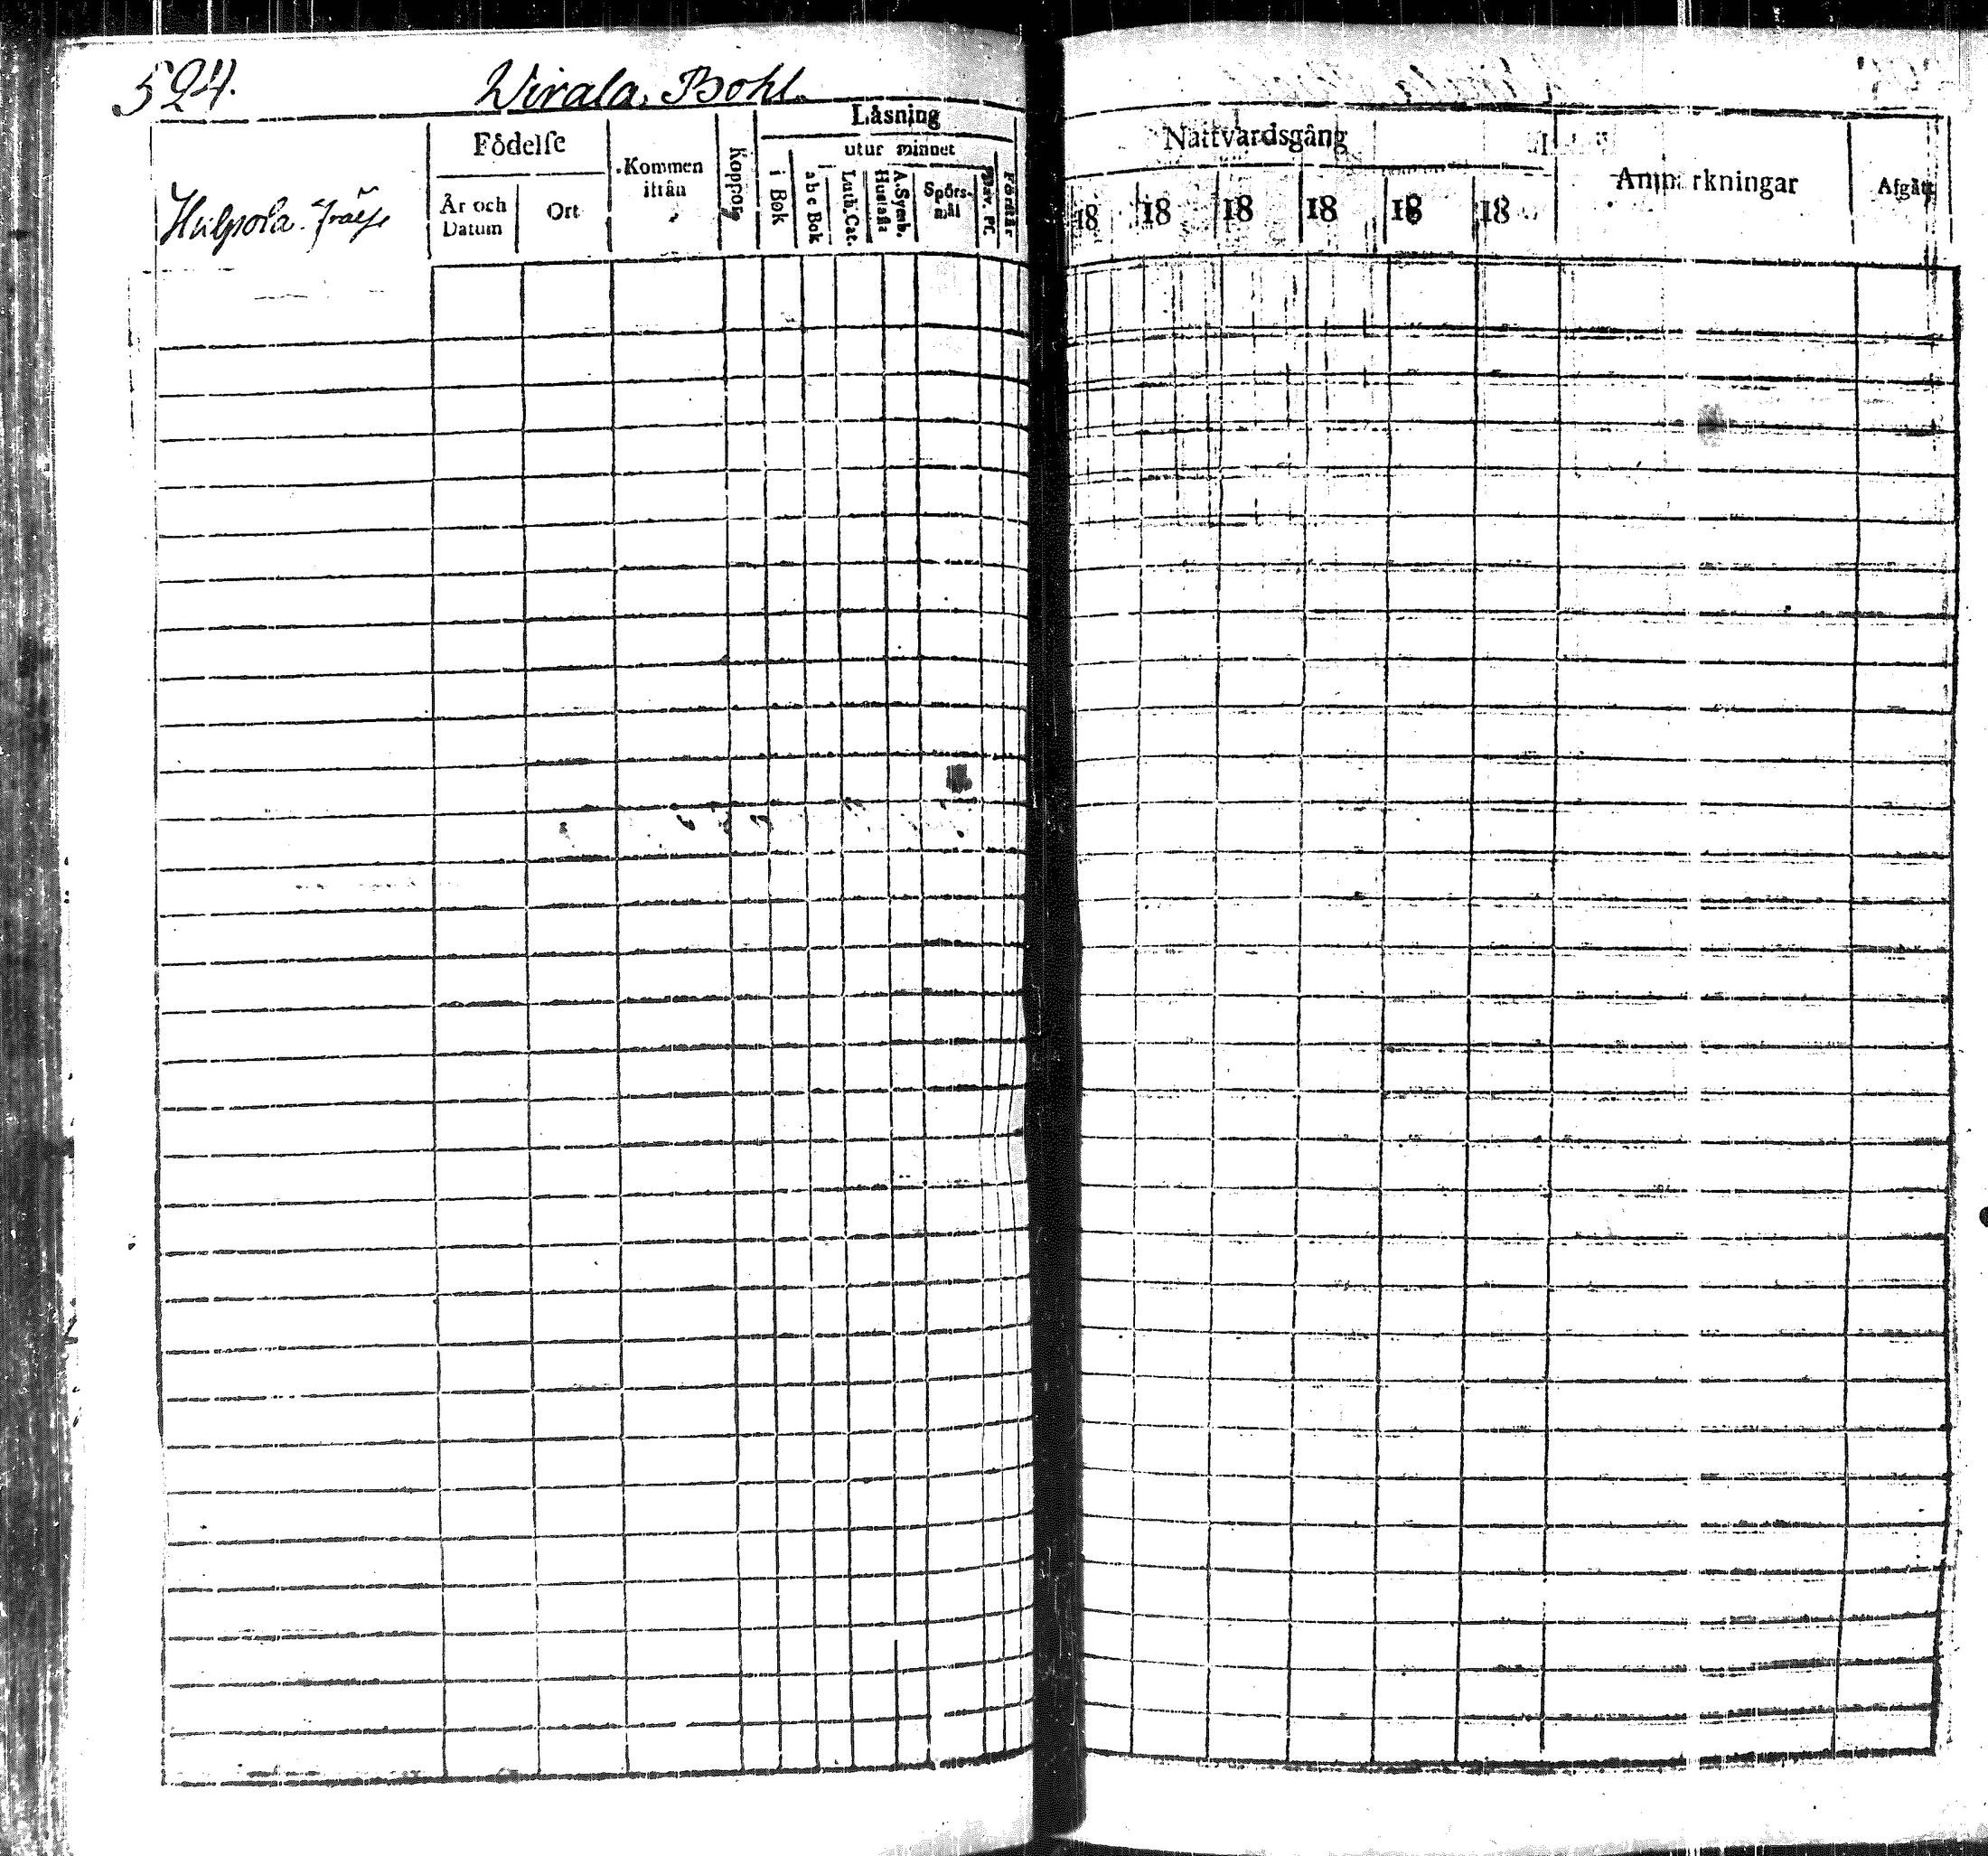 524. Wirala. Bohl.
Hulpola. Frälse
Födelse
År och Datum
Ort
Kommen ifrån
Koppor
Läsning
i Bok
utur minnet
a b c Bok
Luth. Cat.
A. Symb.
Hustafla
Spörsmål
Dav. Ps.
Förstår
Nattvardsgång
18 18 18 18 18 18
Anmärkningar
Afgått